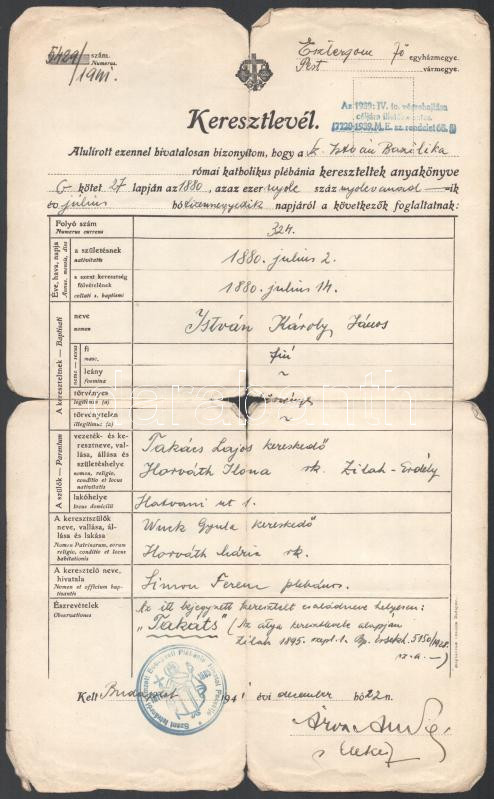 5429/ szám.
Numerus.
/1941.
Esztergom Fő egyházmegye.
Pest vármegye.
Az 1939: IV. tc. végrehajtása
céljára illetékmentes.
(7720-1939. M. E. sz. rendelet 65. §)
Keresztlevél.
Alulírott ezennel hivatalosan bizonyítom, hogy a Sz. István Bazilika
római katholikus plébánia kereszteltek anyakönyve
kötet 27 lapján az 1880, azaz ezer nyolc száz nyolcvanad —ik
év július hó tizennegyedik napjáról a következők foglaltatnak:
Folyó szám
Numerus currens
324.
Éve, hava, napja
Annus, mensis, dies
a születésnek
nativitatis
1880. július 2.
a szent keresztség
fölvételének
collati s. baptismi
1880. július 14.
A kereszteltnek — Baptisati
neve
nomen
István Károly János
neme — sexus
fi
masc.
fiú
leány
foemina
~
törvényes
legitimus (a)
törvényes
törvénytelen
illegitimus (a)
~
A szülők — Parentum
vezeték- és ke-
resztneve, val-
lása, állása és
születéshelye
nomen, religio,
conditio et locus
nativitatis
Takács Lajos kereskedő
Horváth Ilona rk. Zilah-Erdély
lakóhelye
locus domicilii
Hatvani ut 1.
A keresztszülők
neve, vallása, ál-
lása és lakása
Nomen Patrinorum, eorum
religio, conditio et locus
habitationis
Wuck Gyula kereskedő
Horváth Mária rk.
A keresztelő neve,
hivatala
Nomen et officium bap-
tisantis
Simon Ferenc plébános.
Észrevételek
Observationes
Az itt bejegyzett keresztelt családneve helyesen:
„Takáts" (Az atya keresztlevele alapján
Zilah 1895. Bp. érsekh. 5150/1928.
sz. a. —)
Kelt Budapest 1941 évi december hó 22 n.